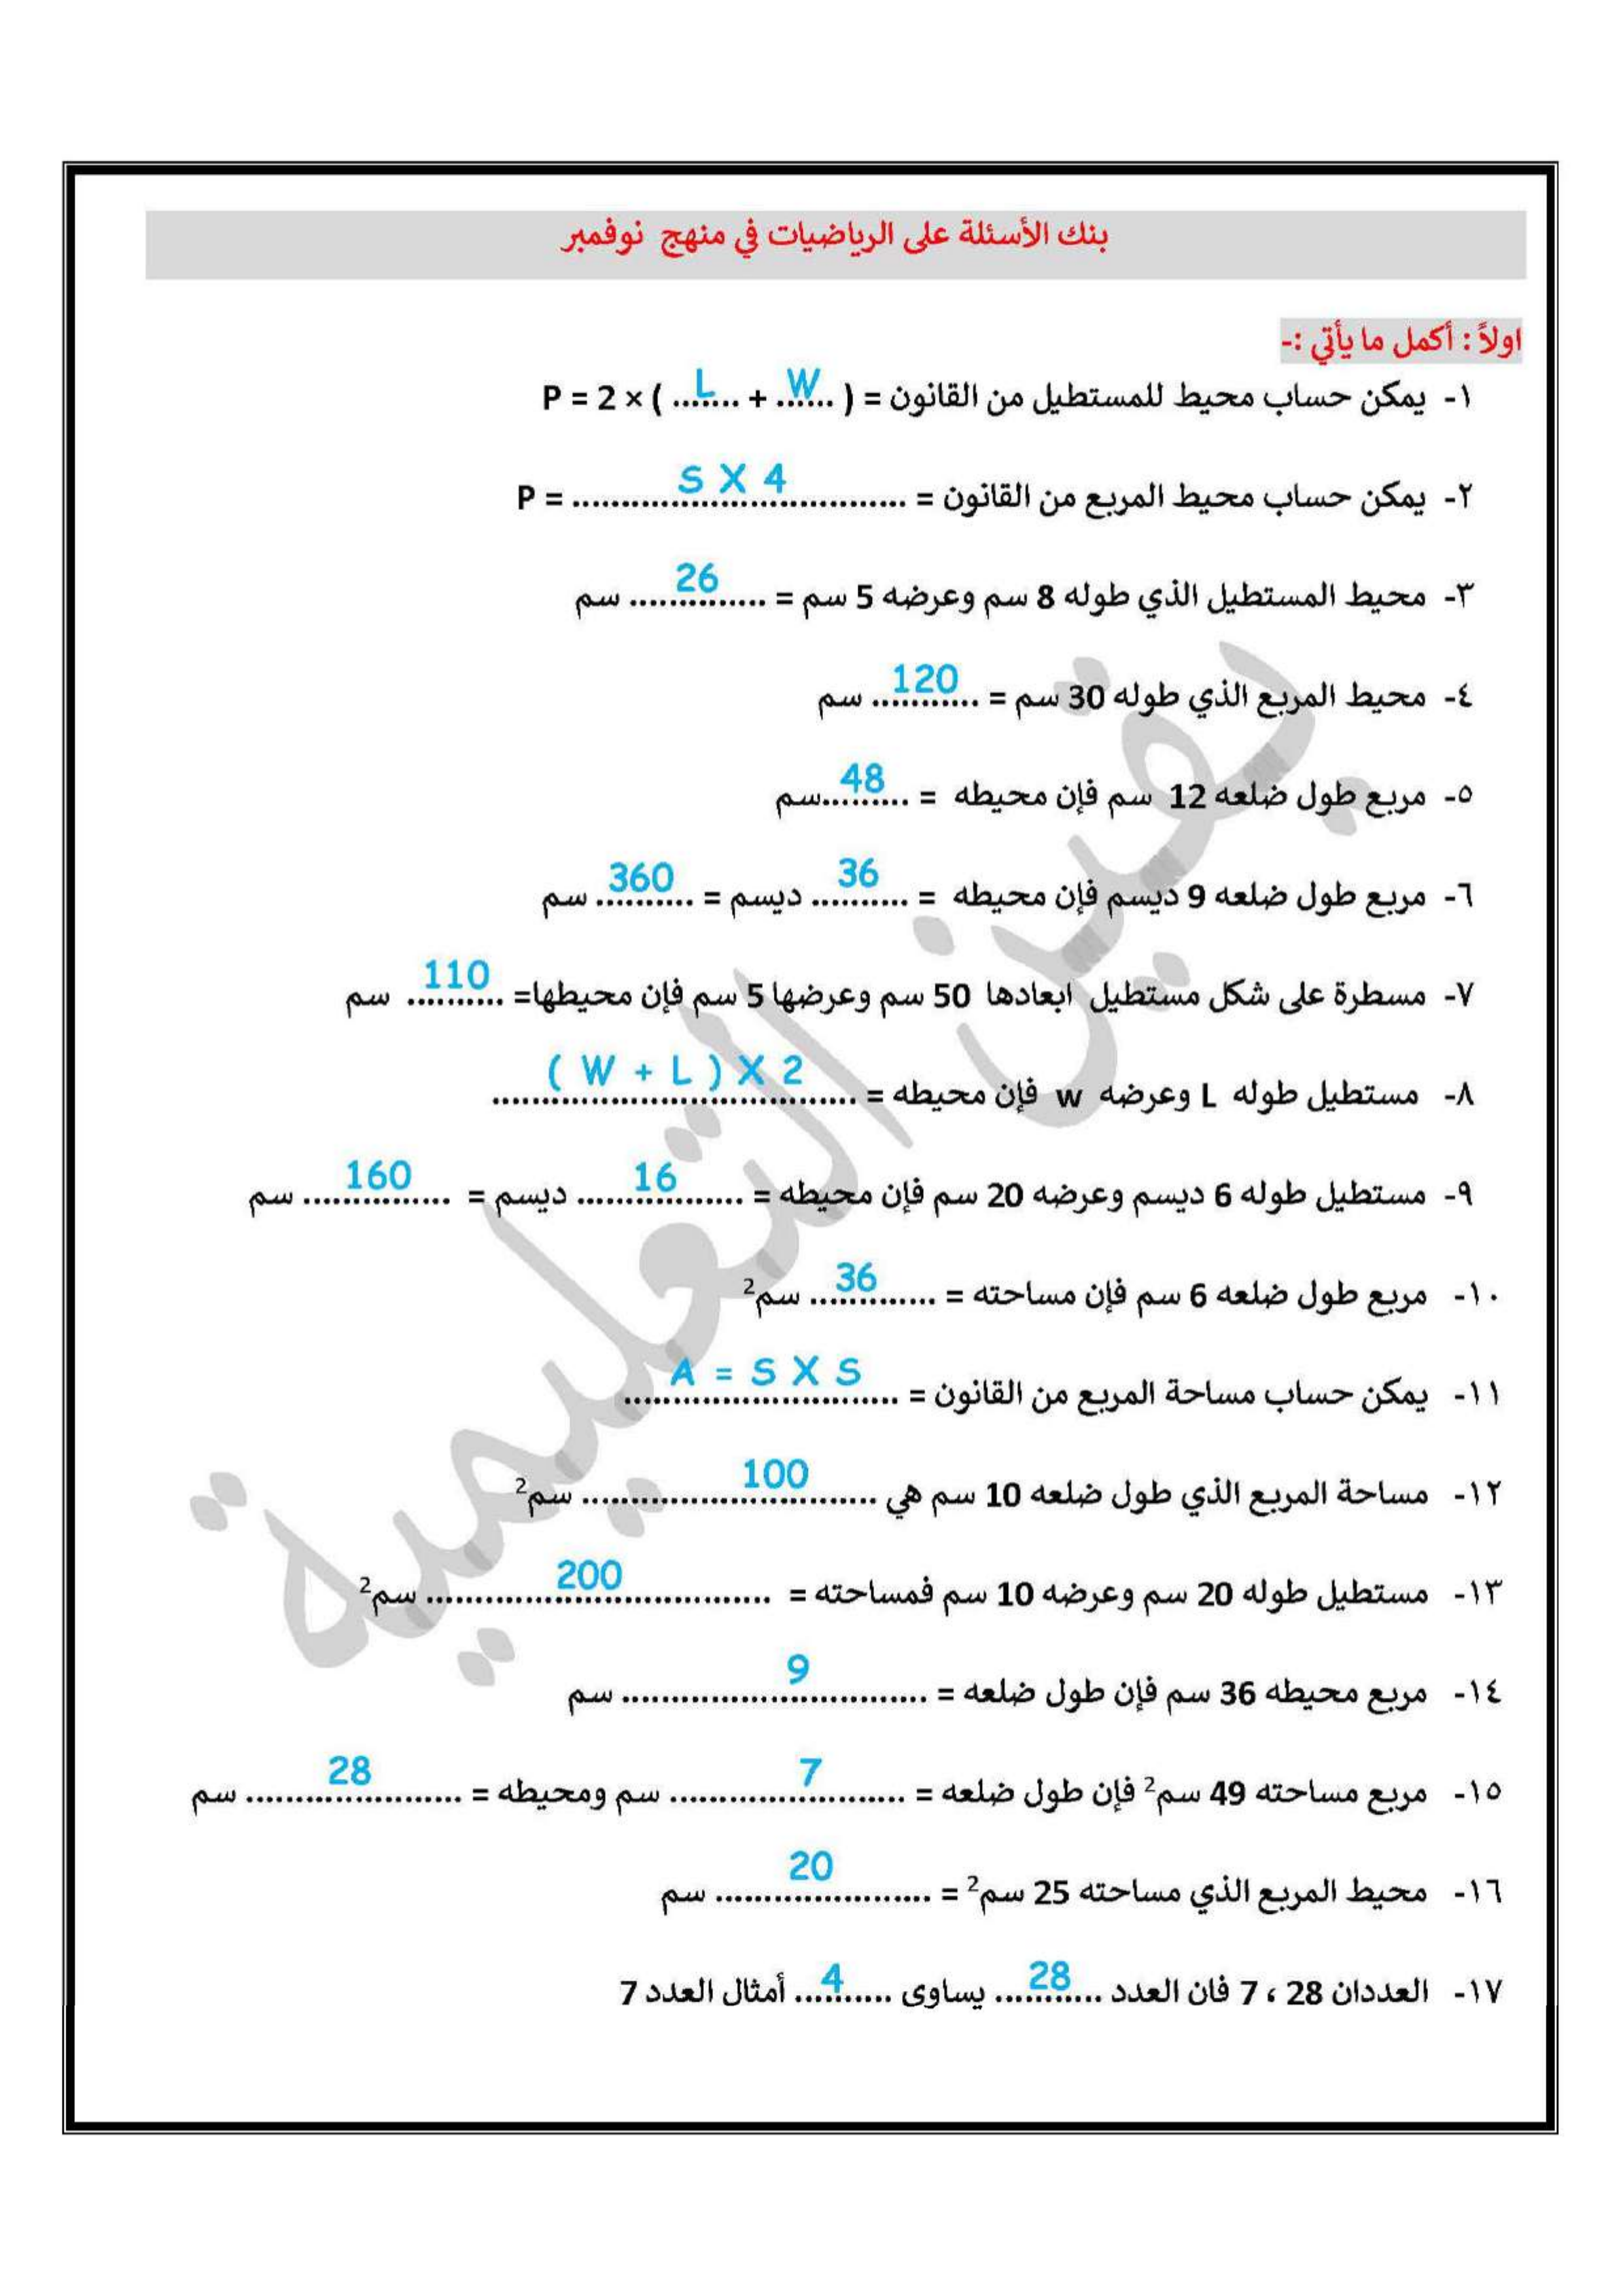 بنك الأسئلة على الرياضيات في منهج نوفمبر
اولاً : أكمل ما يأتي :-
١- يمكن حساب محيط للمستطيل من القانون = P = 2 × ( ...L.... + ...W... )
٢- يمكن حساب محيط المربع من القانون = P = ........ S X 4 ........
٣- محيط المستطيل الذي طوله 8 سم وعرضه 5 سم = ...... 26 ...... سم
٤- محيط المربع الذي طوله 30 سم = .... 120 .... سم
٥- مربع طول ضلعه 12 سم فإن محيطه = .... 48 ....سم
٦- مربع طول ضلعه 9 ديسم فإن محيطه = .... 36 .... ديسم = .... 360 .... سم
٧- مسطرة على شكل مستطيل ابعادها 50 سم وعرضها 5 سم فإن محيطها= .... 110 .... سم
٨- مستطيل طوله L وعرضه w فإن محيطه = ........ ( W + L ) X 2 ........
٩- مستطيل طوله 6 ديسم وعرضه 20 سم فإن محيطه = ...... 16 ...... ديسم = ...... 160 ...... سم
١٠- مربع طول ضلعه 6 سم فإن مساحته = ..... 36 ..... سم²
١١- يمكن حساب مساحة المربع من القانون = ........ A = S X S ........
١٢- مساحة المربع الذي طول ضلعه 10 سم هي ........ 100 ........ سم²
١٣- مستطيل طوله 20 سم وعرضه 10 سم فمساحته = ........ 200 ........ سم²
١٤- مربع محيطه 36 سم فإن طول ضلعه = ........ 9 ........ سم
١٥- مربع مساحته 49 سم² فإن طول ضلعه = ........ 7 ........ سم ومحيطه = ........ 28 ........ سم
١٦- محيط المربع الذي مساحته 25 سم² = ........ 20 ........ سم
١٧- العددان 28 ، 7 فان العدد .... 28 .... يساوى .... 4 .... أمثال العدد 7
يقين التعليمية